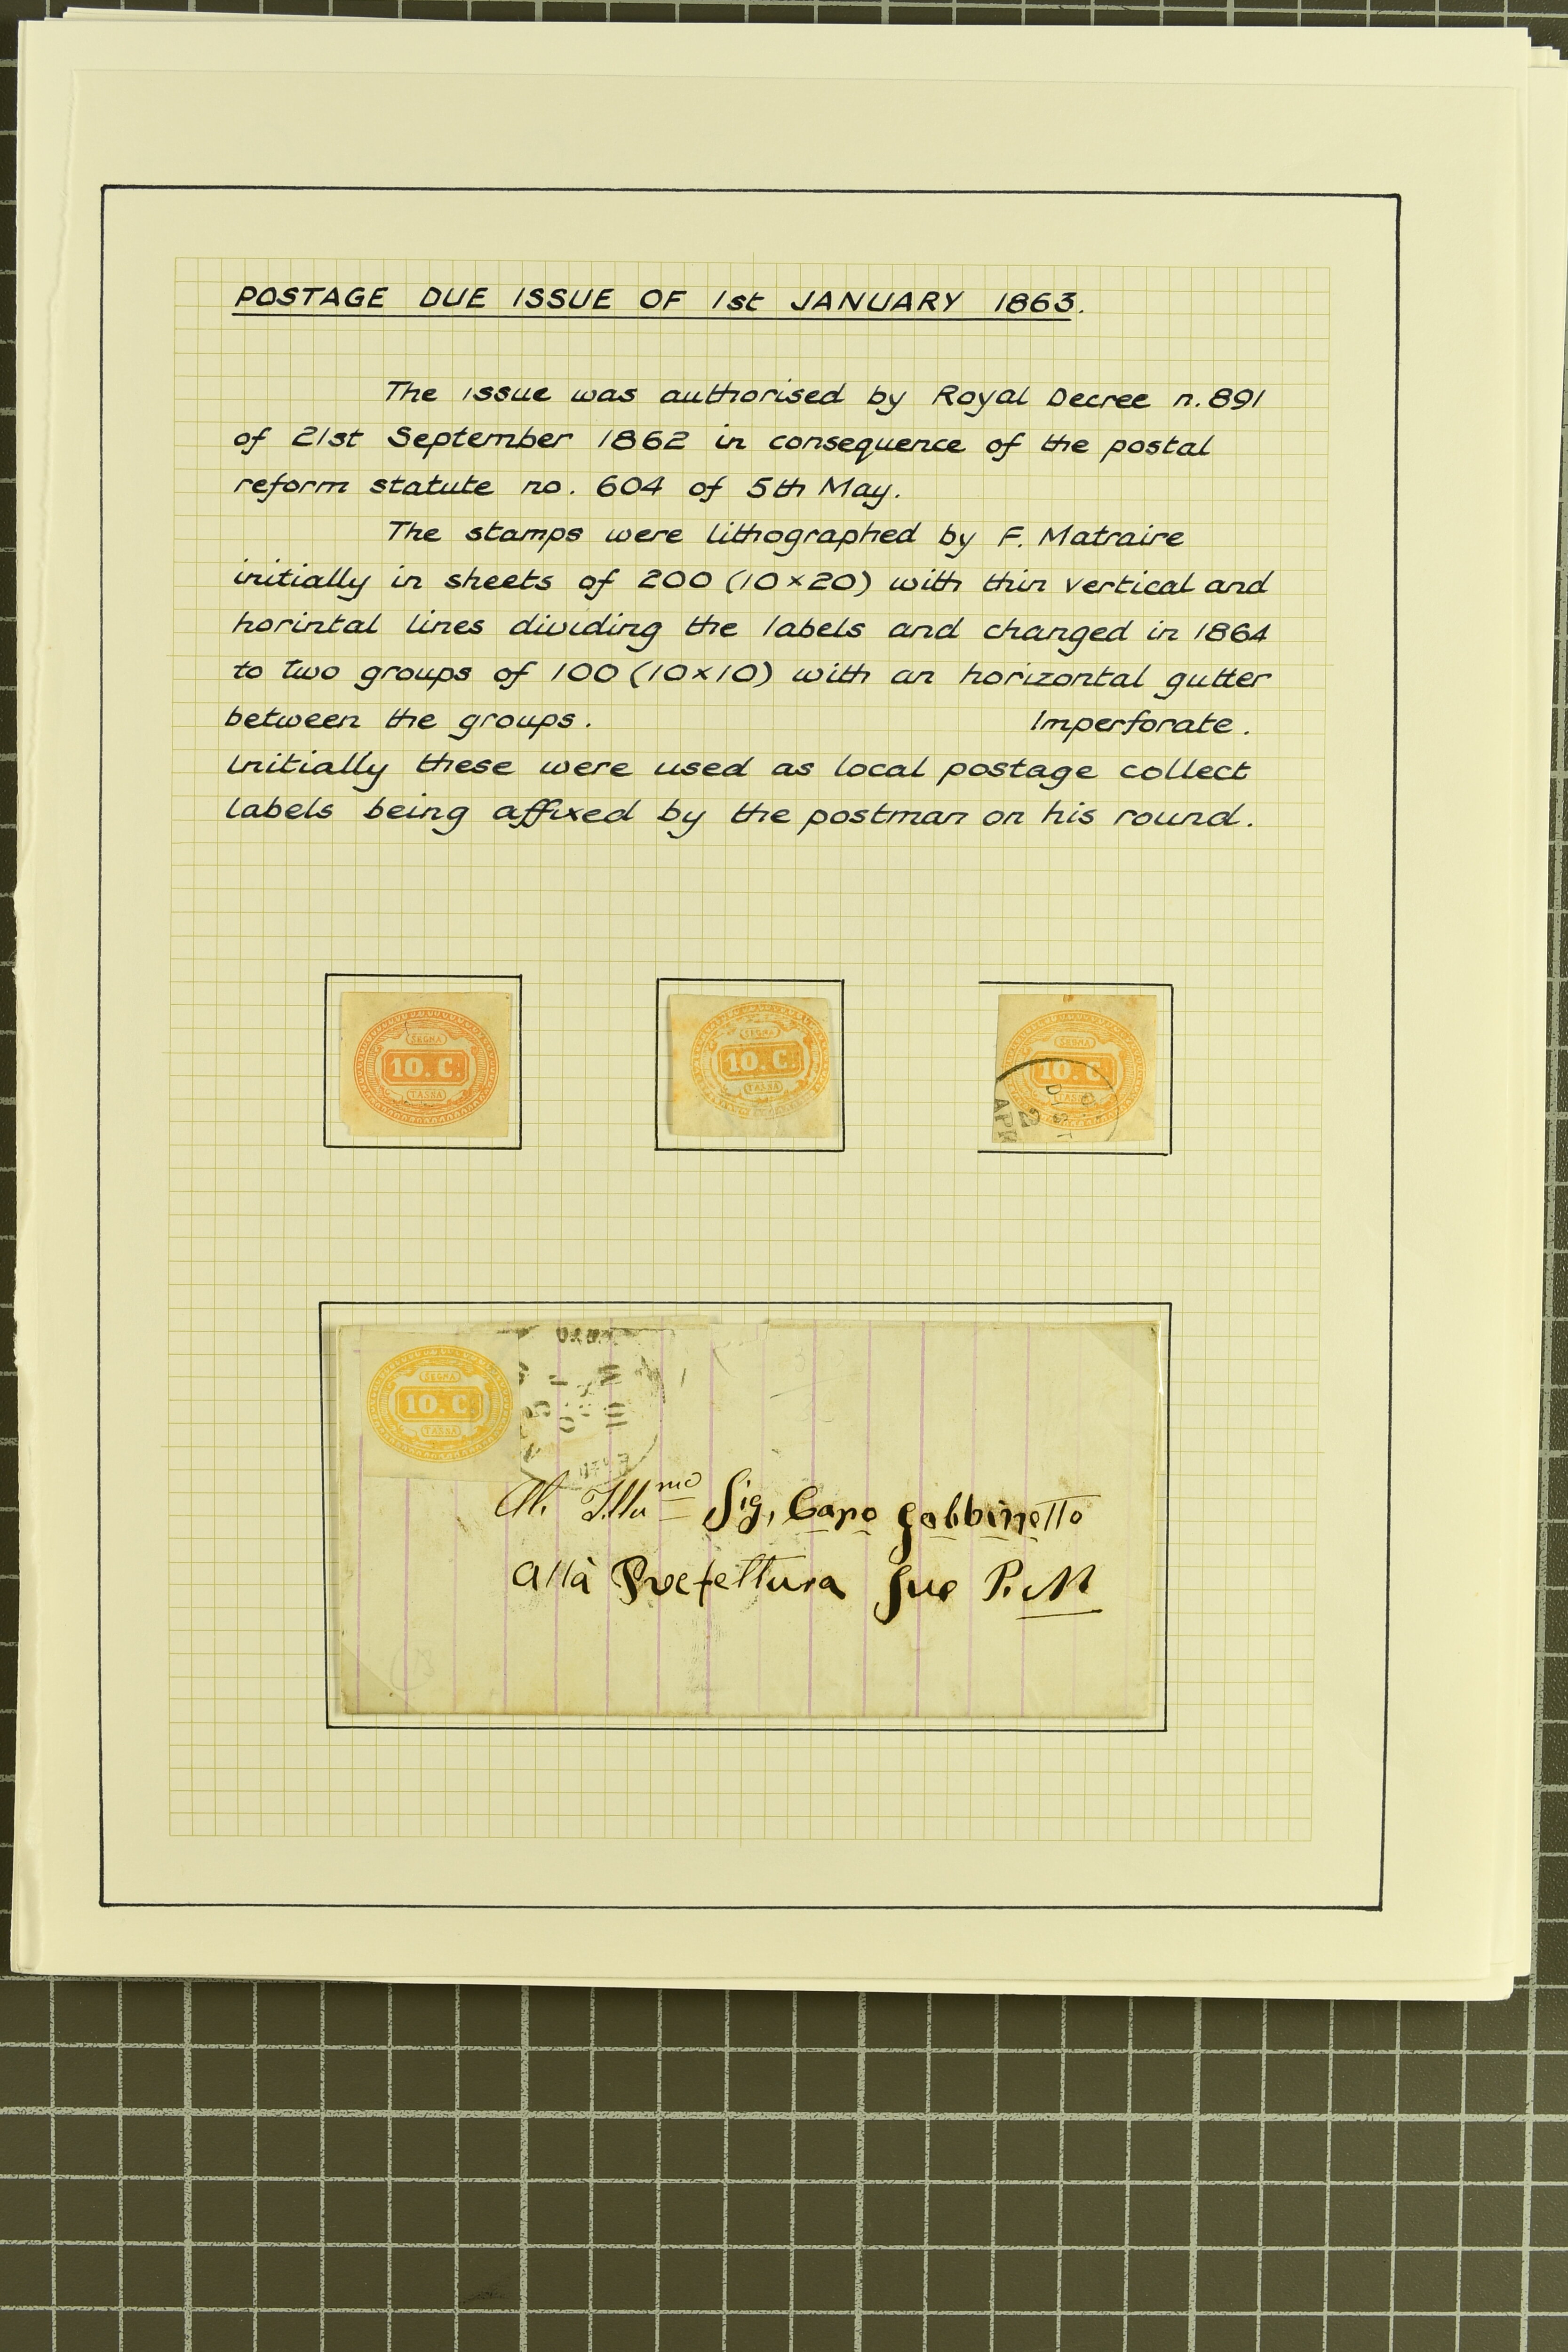 POSTAGE DUE ISSUE OF 1st JANUARY 1863.
The issue was authorised by Royal Decree n.891
of 21st September 1862 in consequence of the postal
reform statute no. 604 of 5th May.
The stamps were lithographed by F. Matraire
initially in sheets of 200 (10×20) with thin vertical and
horintal lines dividing the labels and changed in 1864
to two groups of 100 (10×10) with an horizontal gutter
between the groups. Imperforate.
initially these were used as local postage collect
labels being affixed by the postman on his round.
SEGNA
10. C.
TASSA
SEGNA
10. C.
TASSA
SEGNA
10. C.
TASSA
2
APR
SEGNA
10. C.
TASSA
Al. Illu mo Sig, Capo Gabbinetto
alla Prefettura Sue P. M